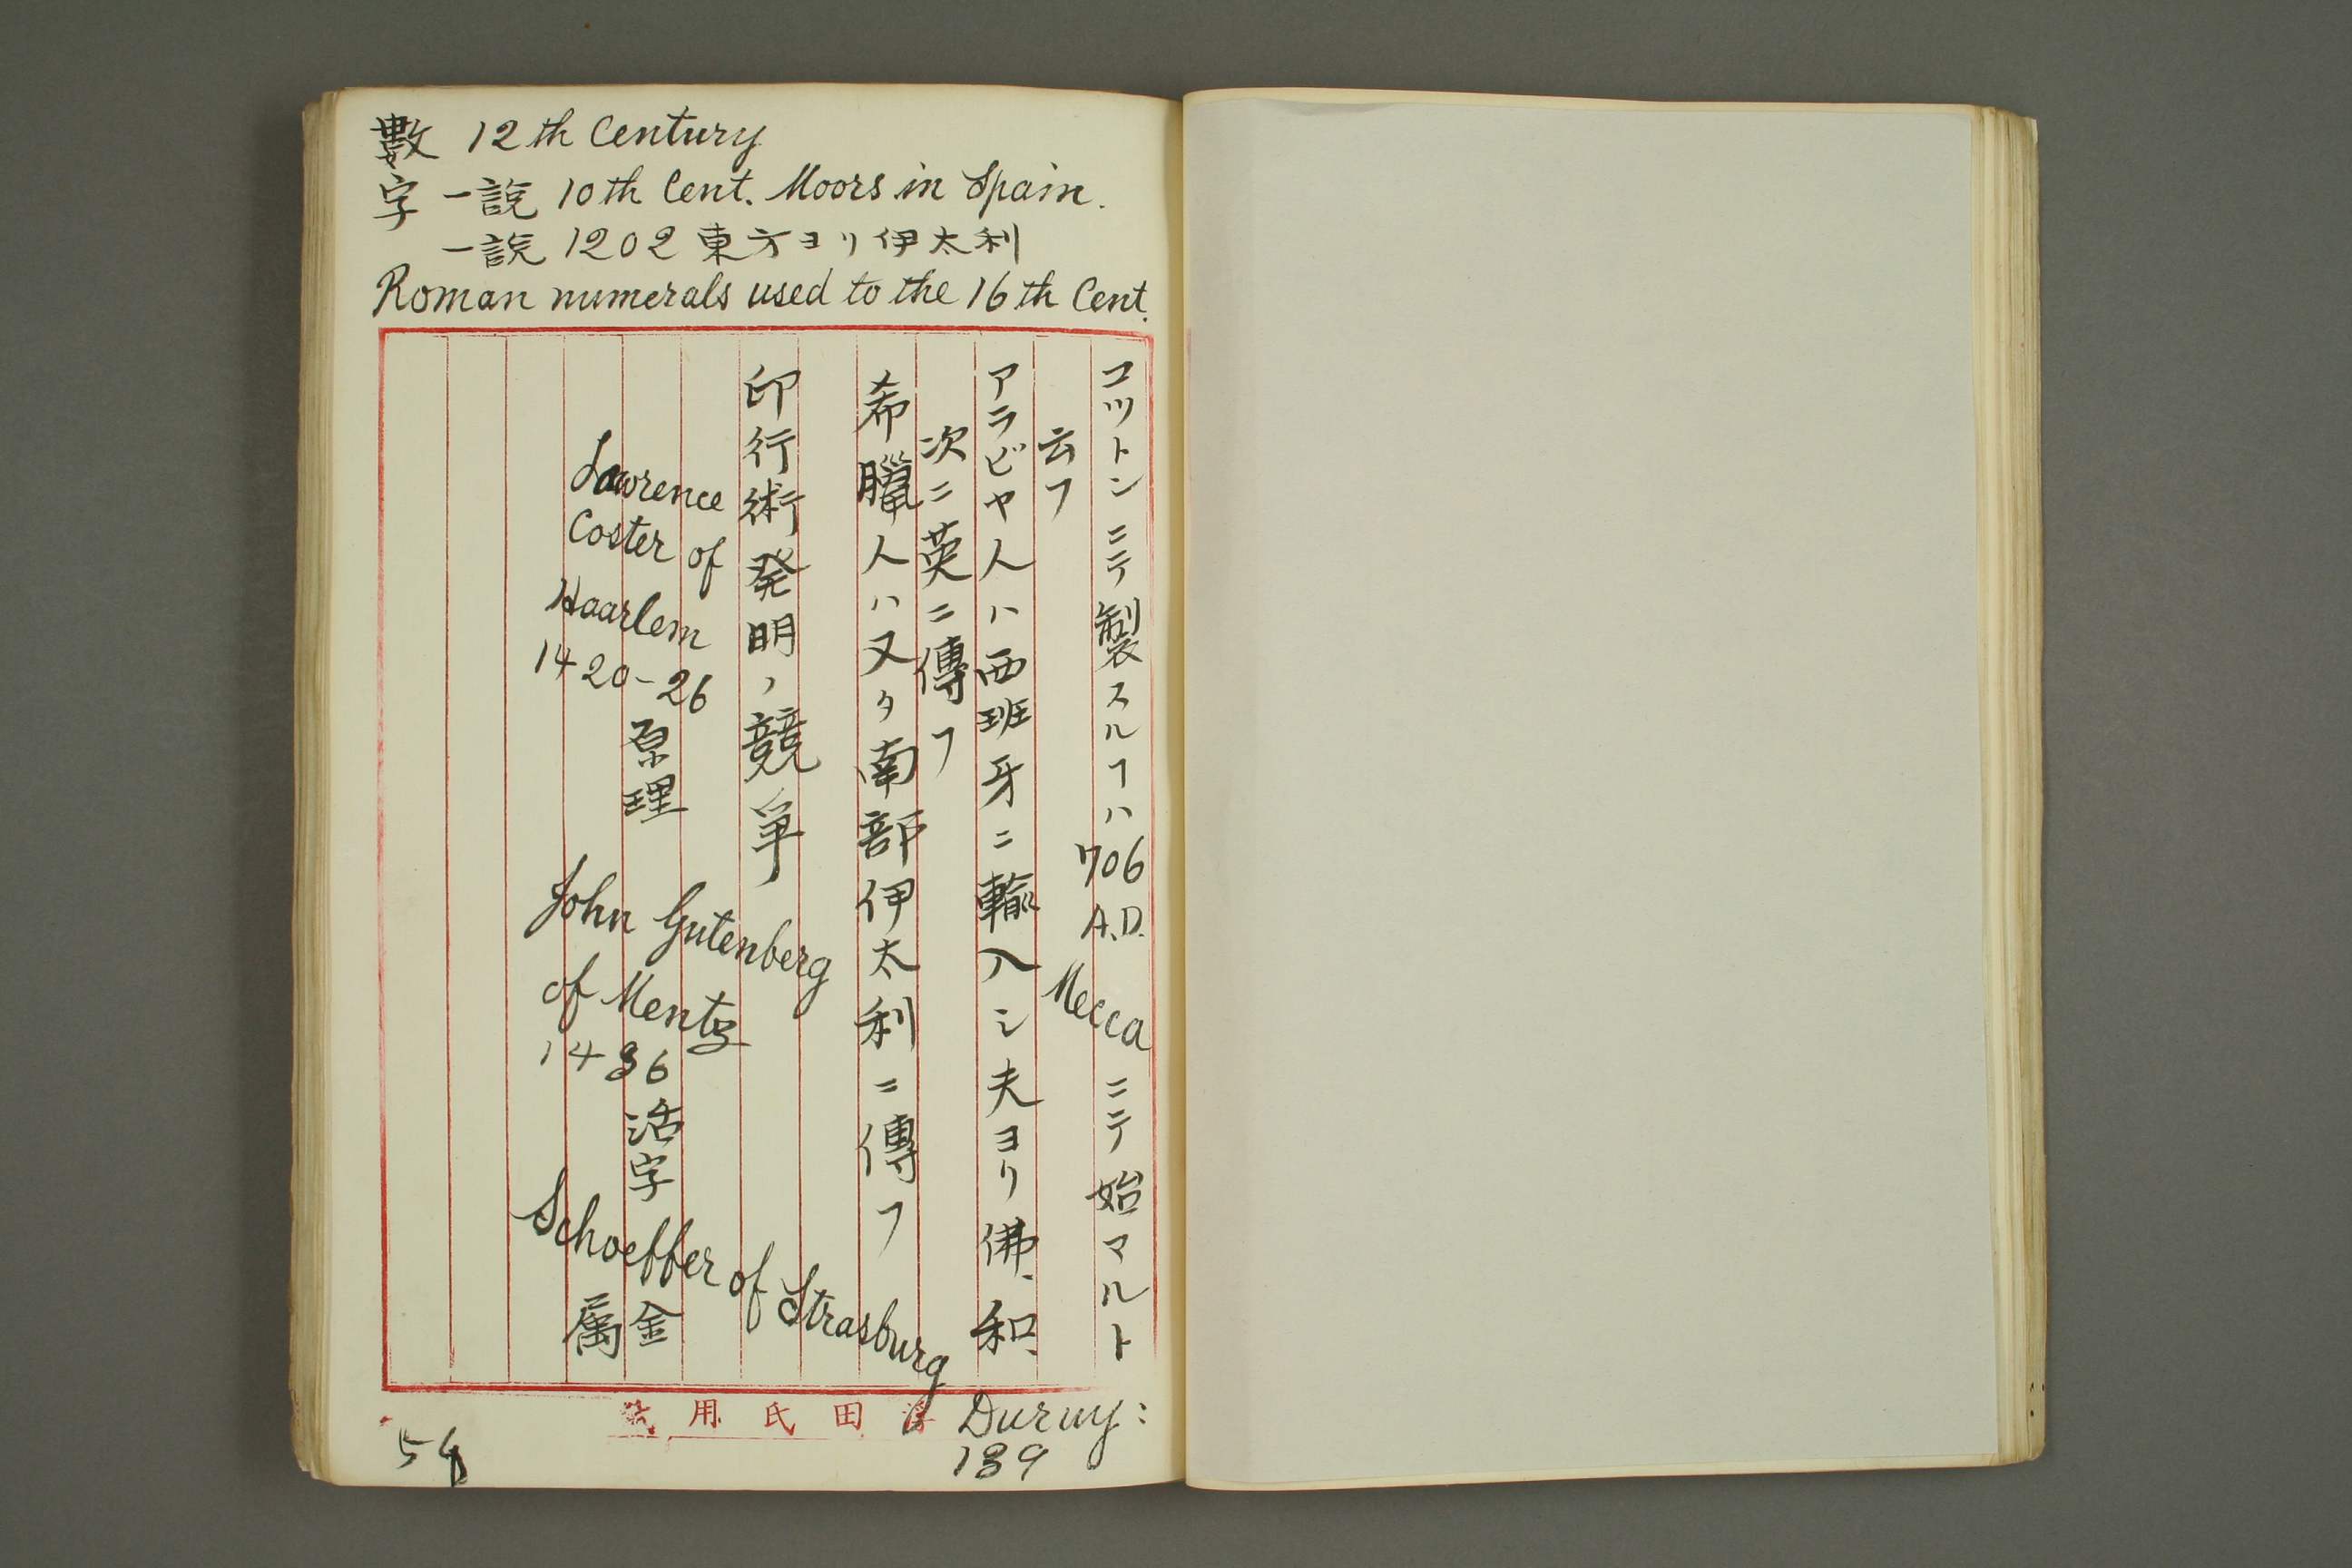 數字 12th Century
一説 10th Cent. Moors in Spain.
一説 1202 東方ヨリ伊太利
Roman numerals used to the 16th Cent.
コツトンニテ製スルヿハ 706 A.D. Mecca ニテ始マルト
云フ
アラビヤ人ハ西班牙ニ輸入シ夫ヨリ佛、和、
次ニ英ニ傳フ
希臘人ハ又タ南部伊太利ニ傳フ
印行術発明ノ競爭
Lawrence
Coster of
Haarlem
1420-26
原理
John Gutenberg
of Mentz
1436
活字
Schoeffer of Strasburg
金属
Duruy:
139
田氏用